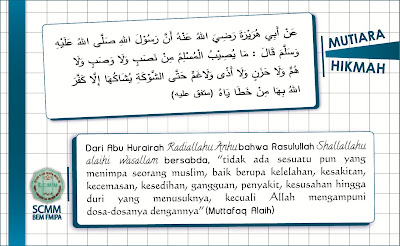 عَنْ أَبِي هُرَيْرَةَ رَضِيَ اللهُ عَنْهُ أَنَّ رَسُوْلَ اللهِ صَلَّى اللهُ عَلَيْهِ
وَسَلَّمَ قَالَ : مَا يُصِيْبُ الْمُسْلِمَ مِنْ نَصَبٍ وَلَا وَصَبٍ وَلَا
هَمٍّ وَلَا حَزَنٍ وَلَا أَذًى وَلَاغَمٍّ حَتَّى الشَّوْكَةِ يُشَاكُهَا إِلَّا كَفَّرَ
اللهُ بِهَا مِنْ خَطَا يَاهُ (متفق عليه)
MUTIARA
HIKMAH
Dari Abu Hurairah Radiallahu Anhu bahwa Rasulullah Shallallahu
alaihi wasallam bersabda, "tidak ada sesuatu pun yang
menimpa seorang muslim, baik berupa kelelahan, kesakitan,
kecemasan, kesedihan, gangguan, penyakit, kesusahan hingga
duri yang menusuknya, kecuali Allah mengampuni
dosa-dosanya dengannya" (Muttafaq Alaih)
SCMM
SCMM
BEM FMIPA